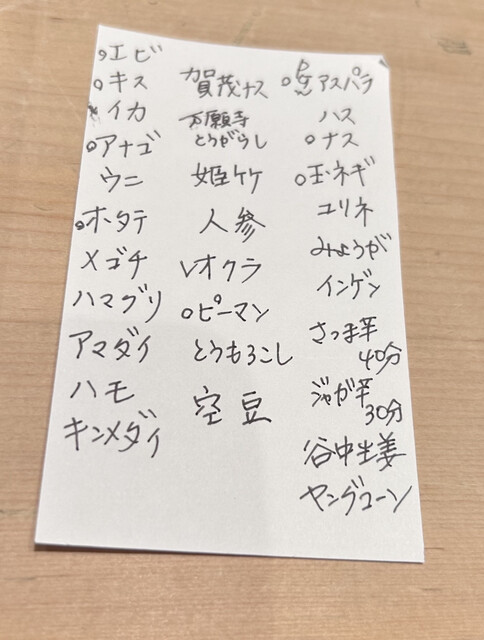 ○エビ
○キス
イカ
○アナゴ
ウニ
○ホタテ
メゴチ
ハマグリ
アマダイ
ハモ
キンメダイ
賀茂ナス
万願寺
とうがらし
姫竹
人参
レオクラ
○ピーマン
とうもろこし
空豆
○アスパラ
ハス
○ナス
○玉ネギ
ユリネ
みょうが
インゲン
さつま芋
40分
ジャガ芋
30分
谷中生姜
ヤングコーン